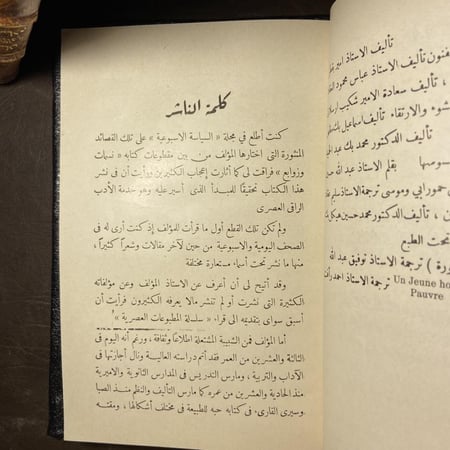 كلمة الناشر
كنت أطلع في مجلة « السياسة الاسبوعية » على تلك القصائد
المنثورة التى اختارها المؤلف من بين مقطوعات كتابه « نسمات
وزوابع » فراقت لى كما أثارت إعجاب الكثيرين ورأيت أن فى نشر
هذا الكتاب تحقيقاً للمبدأ الذى أسير عليه وهو خدمة الأدب
الراقى العصرى
ولم تكن تلك القطع أول ما قرأت للمؤلف إذ كنت أرى له فى
الصحف اليومية والاسبوعية من حين لآخر مقالات وشعراً كثيراً ،
منها ما نشر تحت أسماء مستعارة مختلفة
وقد أتيح لى أن أعرف عن الاستاذ المؤلف وعن مؤلفاته
الكثيرة التى نشرت أو لم تنشر مالا يعرفه الكثيرون فرأيت أن
أسبق سواى بتقديمه الى قراء « سلسلة المطبوعات العصرية » !
أما المؤلف فمن الشبيبة المشتعلة اطلاعًا وثقافة ، ورغم أنه اليوم فى
الثالثة والعشرين من العمر فقد أتم دراسته العالية ونال أجازتها فى
الآداب والتربية ، ومارس التدريس فى المدارس الثانوية والاميرية
منذ الحادية والعشرين من عمره كما مارس التأليف والنظم منذ الصبا
وسيرى القارىء فى كتابه حبه للطبيعة فى مختلف أشكالها ، ومقته
تأليف الاستاذ امير
تأليف الاستاذ عباس محمود
، تأليف سعادة الامير شكيب ارسلان
والارتقاء تأليف اسماعيل بك
تأليف الدكتور محمد بك عبد
بقلم الاستاذ عبد الله
حمورابى وموسى ترجمة الاستاذ سليم
، تأليف الدكتور محمد حسين هيكل
تحت الطبع
) ترجمة الاستاذ توفيق عبد الله
Un Jeune ho ترجمة الاستاذ احمد
Pauvre